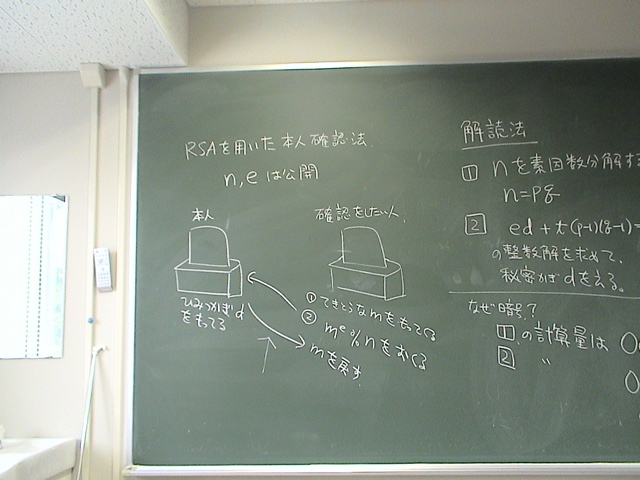 RSAを用いた本人確認法
n,eは公開
本人
確認をしたい人
ひみつかぎd
をもってる
① てきとうなmをもってくる
② m^e%nをおくる
mを戻す
解読法
1 nを素因数分解する
n=pq
2 ed+t(p-1)(q-1)=
の整数解を求めて、
秘密かぎdをえる。
なぜ暗号?
1 の計算量は O
2 〃
O